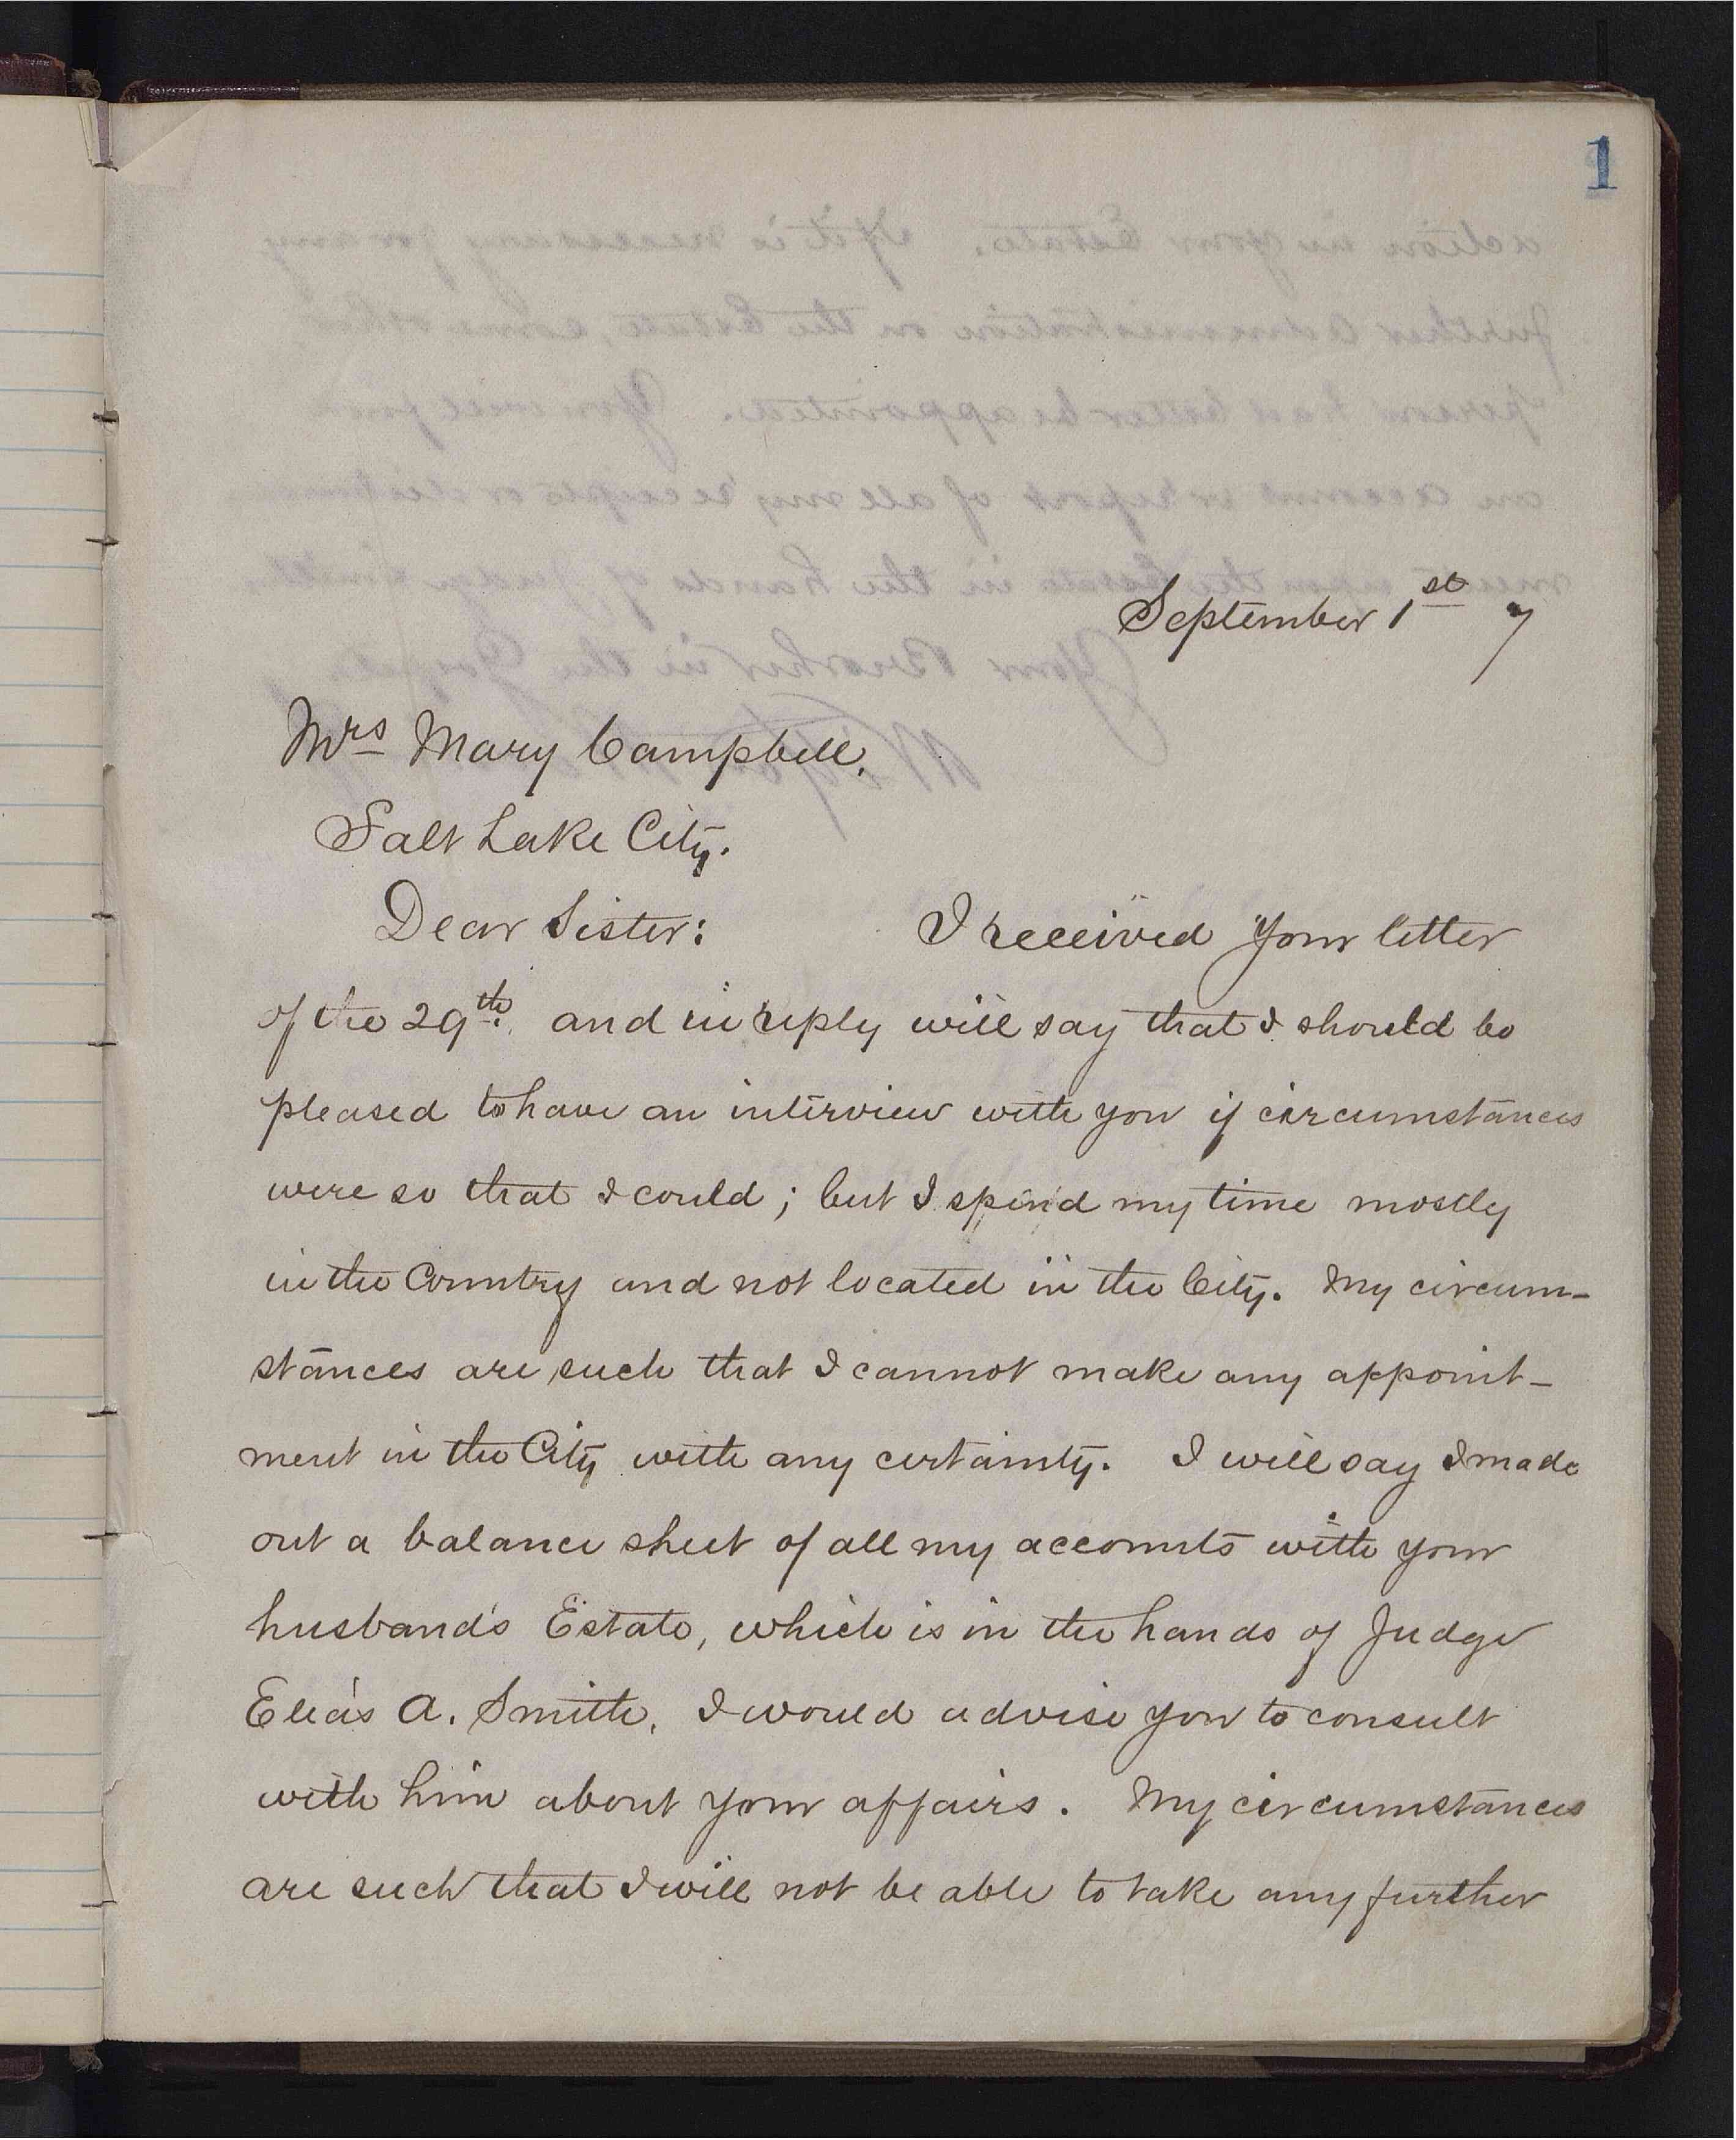 1
September 1st 7
Mrs Mary Campbell,
Salt Lake City.
Dear Sister: I received your letter
of the 29th. and in reply will say that I should be
pleased to have an interview with you if circumstances
were so that I could; but I spend my time mostly
in the Country and not located in the City. My circum-
stances are such that I cannot make any appoint-
ment in the City with any certainty. I will say I made
out a balance sheet of all my accounts with your
husband's Estate, which is in the hands of Judge
Elias A. Smith, I would advise you to consult
with him about your affairs. My circumstances
are such that I will not be able to take any further